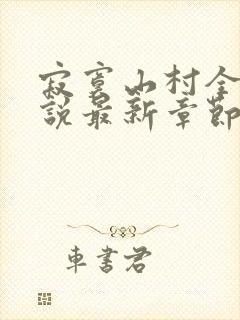 寂寞山村全
說最新章節
車書君